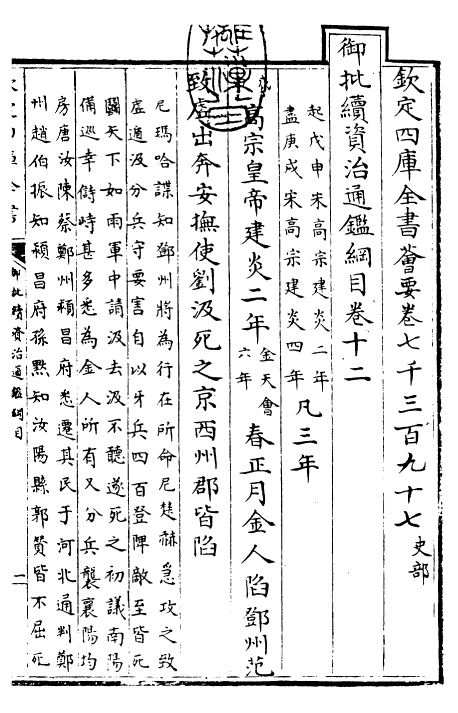 欽定四庫全書薈要卷七千三百九十七 史部
御批續資治通鑑綱目卷十二
起戊申宋高宗建炎二年
盡庚戌宋高宗建炎四年
凡三年
高宗皇帝建炎二年
金天會
六年
春正月金人陷鄧州范
致虛出奔安撫使劉汲死之京西州郡皆陷
尼瑪哈諜知鄧州將為行在所命尼楚赫急攻之致
虛遁汲分兵守要害自以牙兵四百登陴敵至皆死
鬭矢下如雨軍中請汲去汲不聽遂死之初議南陽
備巡幸儲峙甚多悉為金人所有又分兵襲襄陽均
房唐汝陳蔡鄭州穎昌府悉遷其民于河北通判鄭
州趙伯振知穎昌府孫黙知汝陽縣郭贊皆不屈死
御批續資治通鑑綱目